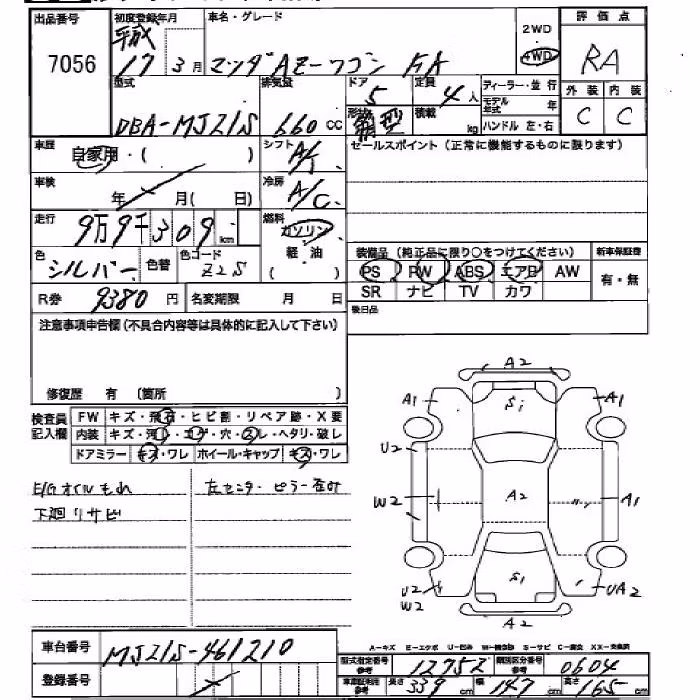 出品番号 初度登録年月 車名・グレード 2WD 評価点
7056 平成 17 3月 マツダAZ-ワゴン FA 4WD RA
型式 排気量 ドア 5 定員 4人 ディーラー・並行 外装 内装
DBA-MJ21S 660 cc 形状 箱型 積載 kg モデル年式 年 C C
ハンドル 左・右
車歴 自家用・( ) シフト A/T セールスポイント(正常に機能するものに限ります)
車検 年 月( 日) 冷房 A/C
走行 9万9千309 km 燃料 ガソリン
色 シルバー 色替 色コード Z2S 軽油 装備品(純正品に限り○をつけてください) 新車保証書
( ) PS PW ABS エアB AW 有・無
R券 9380 円 名変期限 月 日 SR ナビ TV カワ
注意事項申告欄(不具合内容等は具体的に記入して下さい) 後日品
修復歴 有 (箇所 )
検査員 FW キズ・飛石・ヒビ割・リペア跡・X要
記入欄 内装 キズ・汚レ・コゲ・穴・スレ・ヘタリ・破レ
ドアミラー キズ・ワレ ホイール・キャップ キズ・ワレ
E/Gオイルもれ 左センターピラー歪み
下廻りサビ
A2
A1 Si A1
U2
W2 A2 A1
U2 S1 UA2
W2
A2
A-キズ E-エクボ U-凹み S-サビ
車台番号 MJ21S-461210 型式指定番号 参考 12752 類別区分番号 参考 0604
登録番号 車庫証明用 参考 長さ 339 cm 幅 147 cm 高さ 165 cm